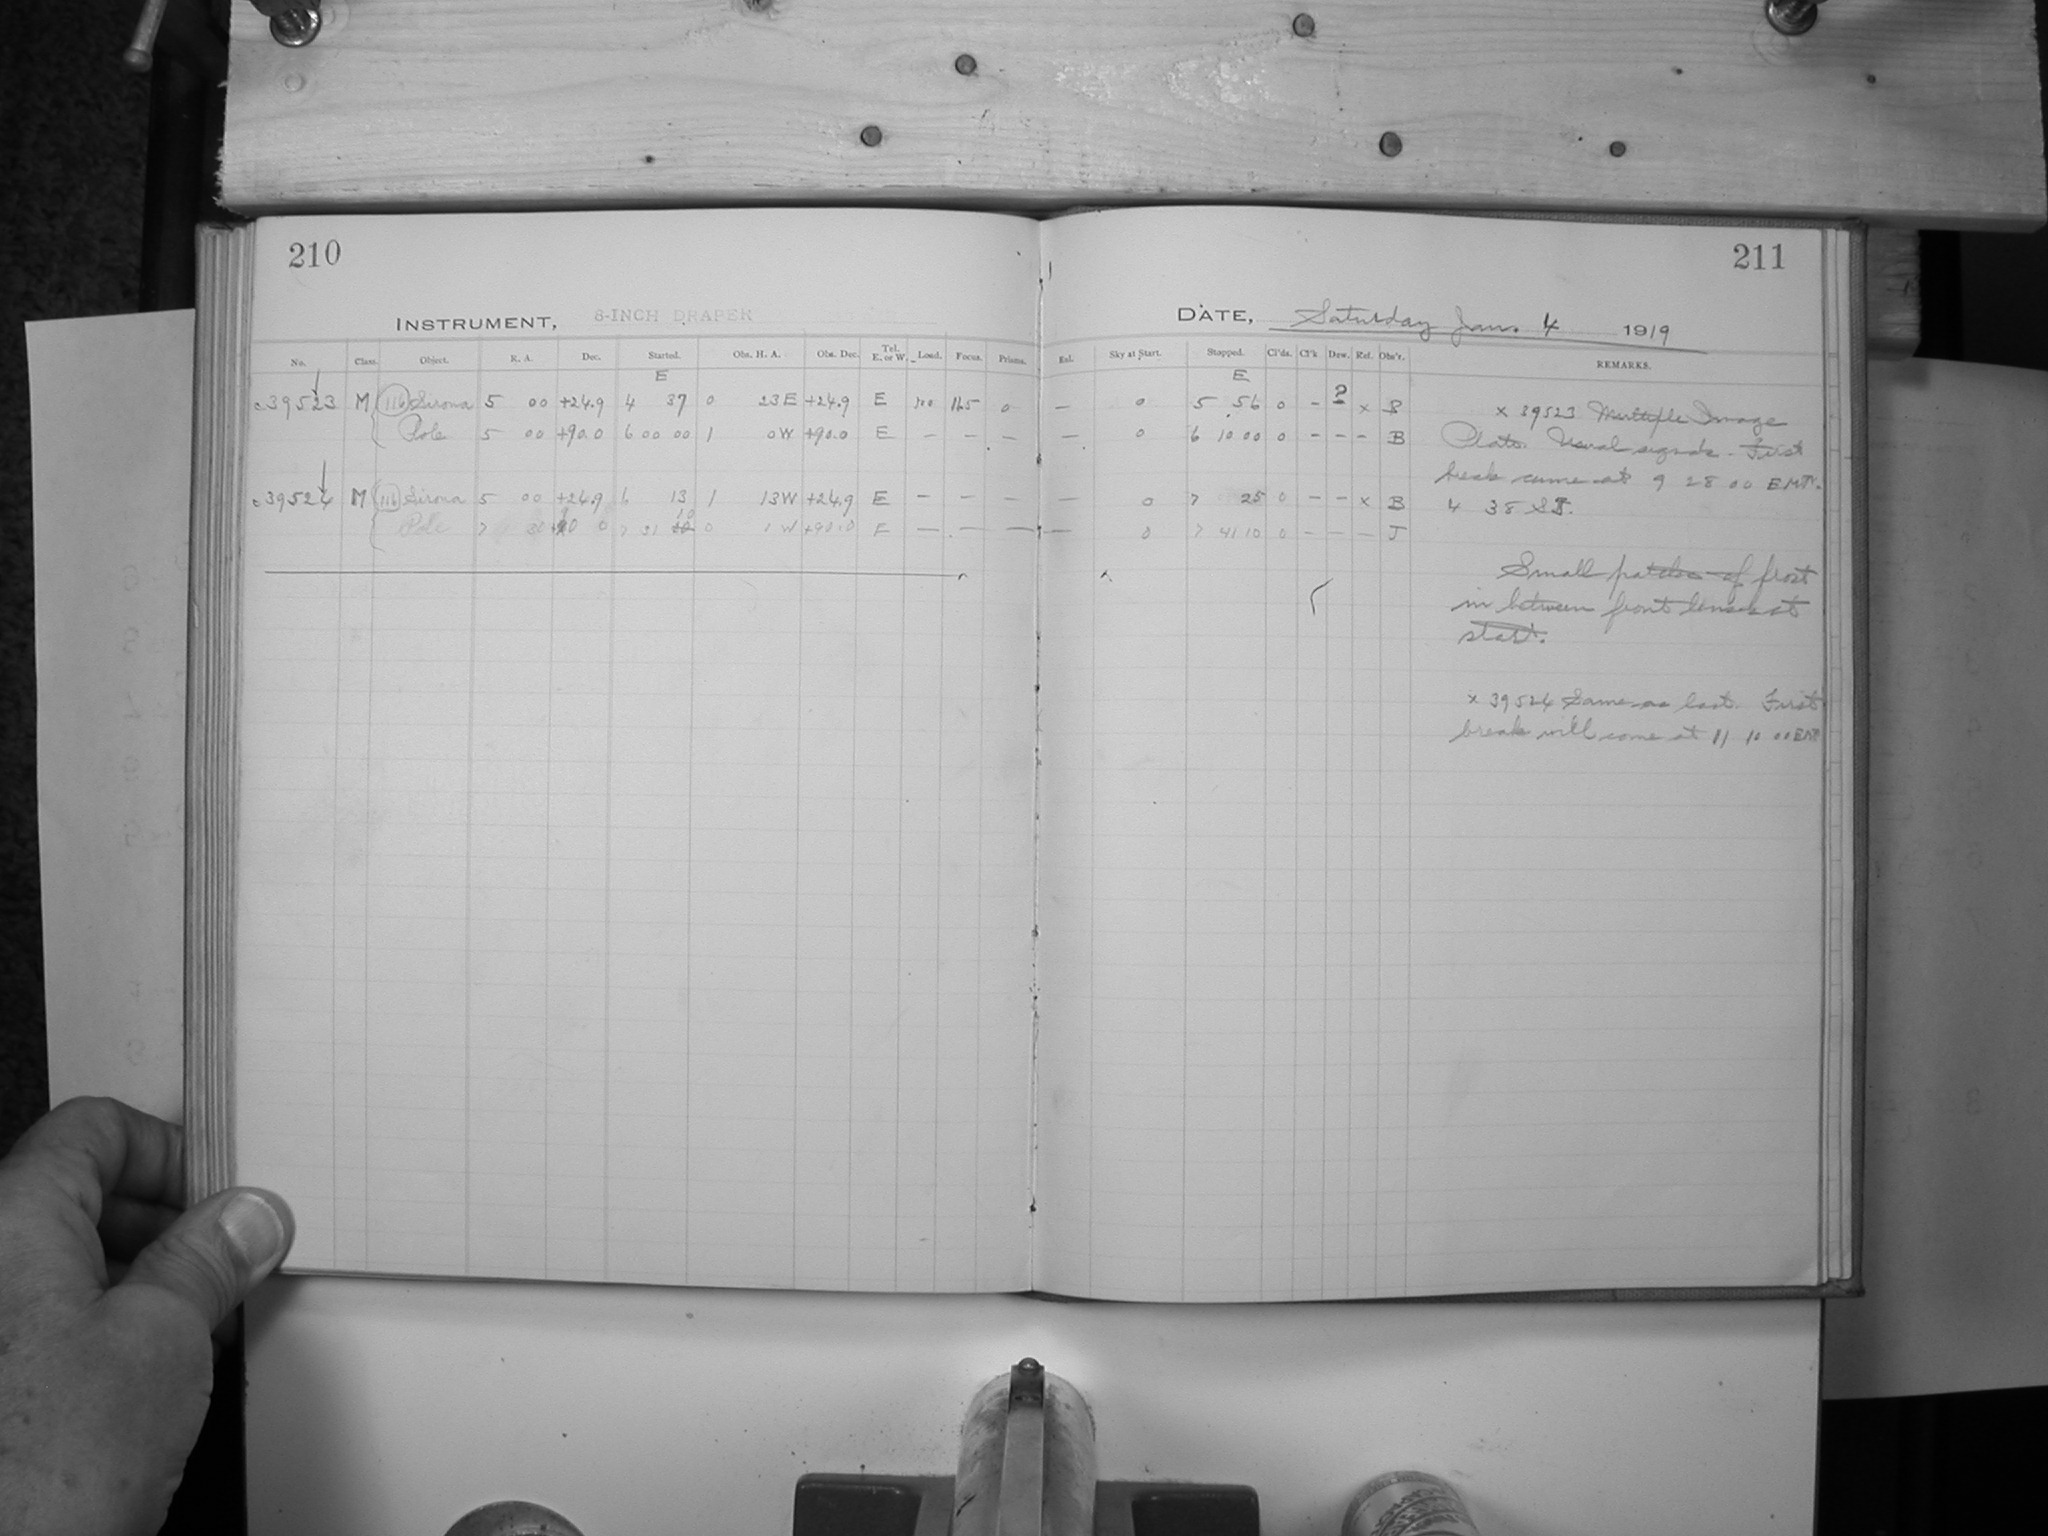 210
INSTRUMENT, 8-INCH DRAPER
No. Class. Object. R. A. Dec. Started. Obs. H. A. Obs. Dec. Tel. E. or W. Load. Focus. Prisms.
E
c39523 M (116) Sirona 5 00 +24.9 4 37 0 23 E +24.9 E 100 16.5 0
Pole 5 00 +90.0 6 00 00 1 0 W +90.0 E — — —
c39524 M (116) Sirona 5 00 +24.9 6 13 1 13 W +24.9 E — — —
Pole 7 30 +90 0 7 31 10 0 1 W +90.0 E — — —
211
DATE, Saturday Jan. 4 1919
Enl. Sky at Start. Stopped. Cl'ds. Cl'k Dew. Ref. Obs'r. REMARKS.
E
— 0 5 56 0 - ? x S
— 0 6 10 00 0 - - - B
— 0 7 25 0 - - x B
— 0 7 41 10 0 - - - J
x 39523 Multiple Image
Plate. Usual signals. First
break came at 9 28 00 EMT.
4 38 ST.
Small patches of frost
in between front lenses at
start.
x 39524 Same as last. First
break will come at 11 10 00 EMT